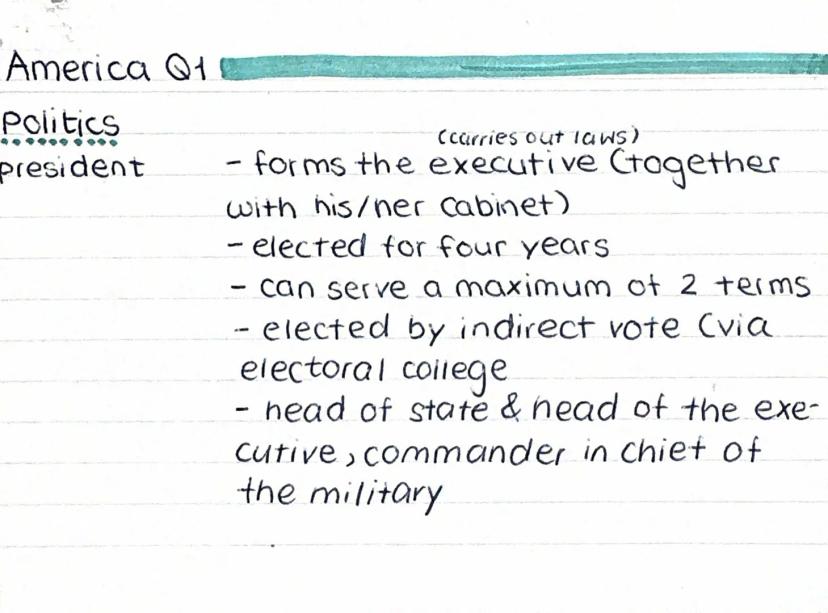 America Q1
Politics
(carries out laws)
president - forms the executive (together
with his/her cabinet)
- elected for four years
- can serve a maximum of 2 terms
- elected by indirect vote (via
electoral college
- head of state & head of the exe-
cutive, commander in chief of
the military